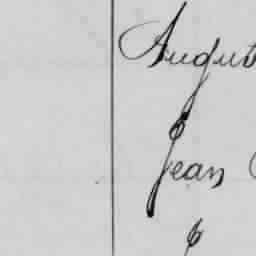 August
Jean